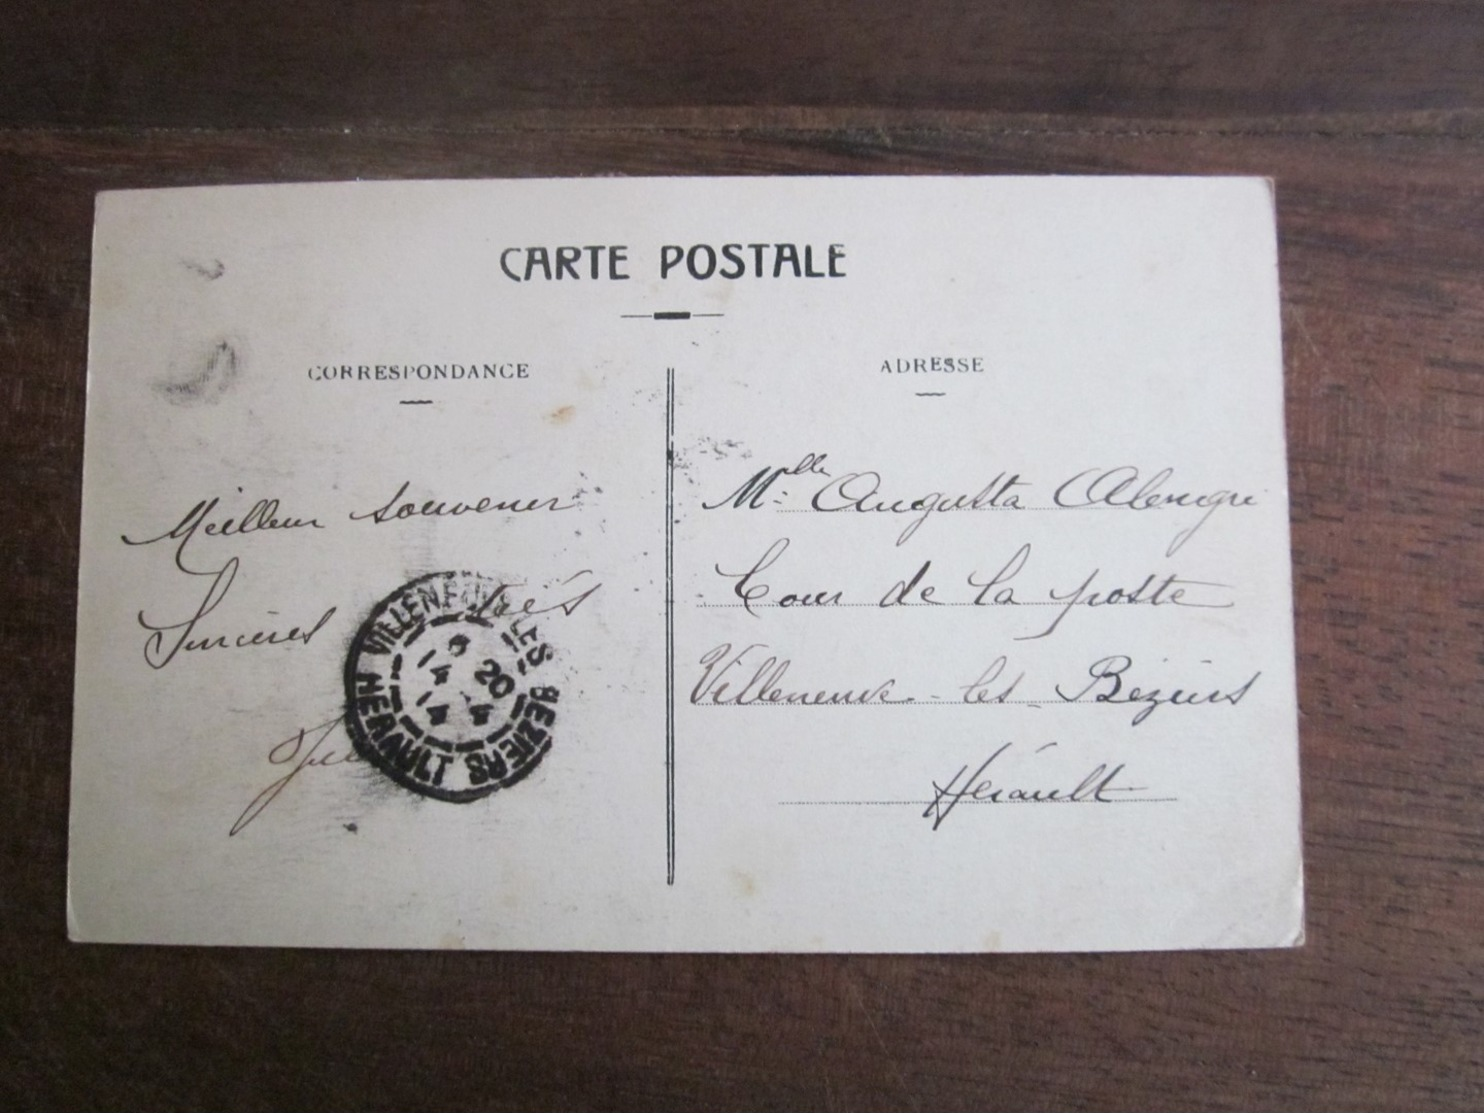 CARTE POSTALE
CORRESPONDANCE
Meilleur souvenir
Sincères
ADRESSE
Mlle Augusta Alengri
Cour de la poste
Villeneuve-les-Beziers
Hérault
VILLENEUVE LES BEZIERS
HERAULT
20